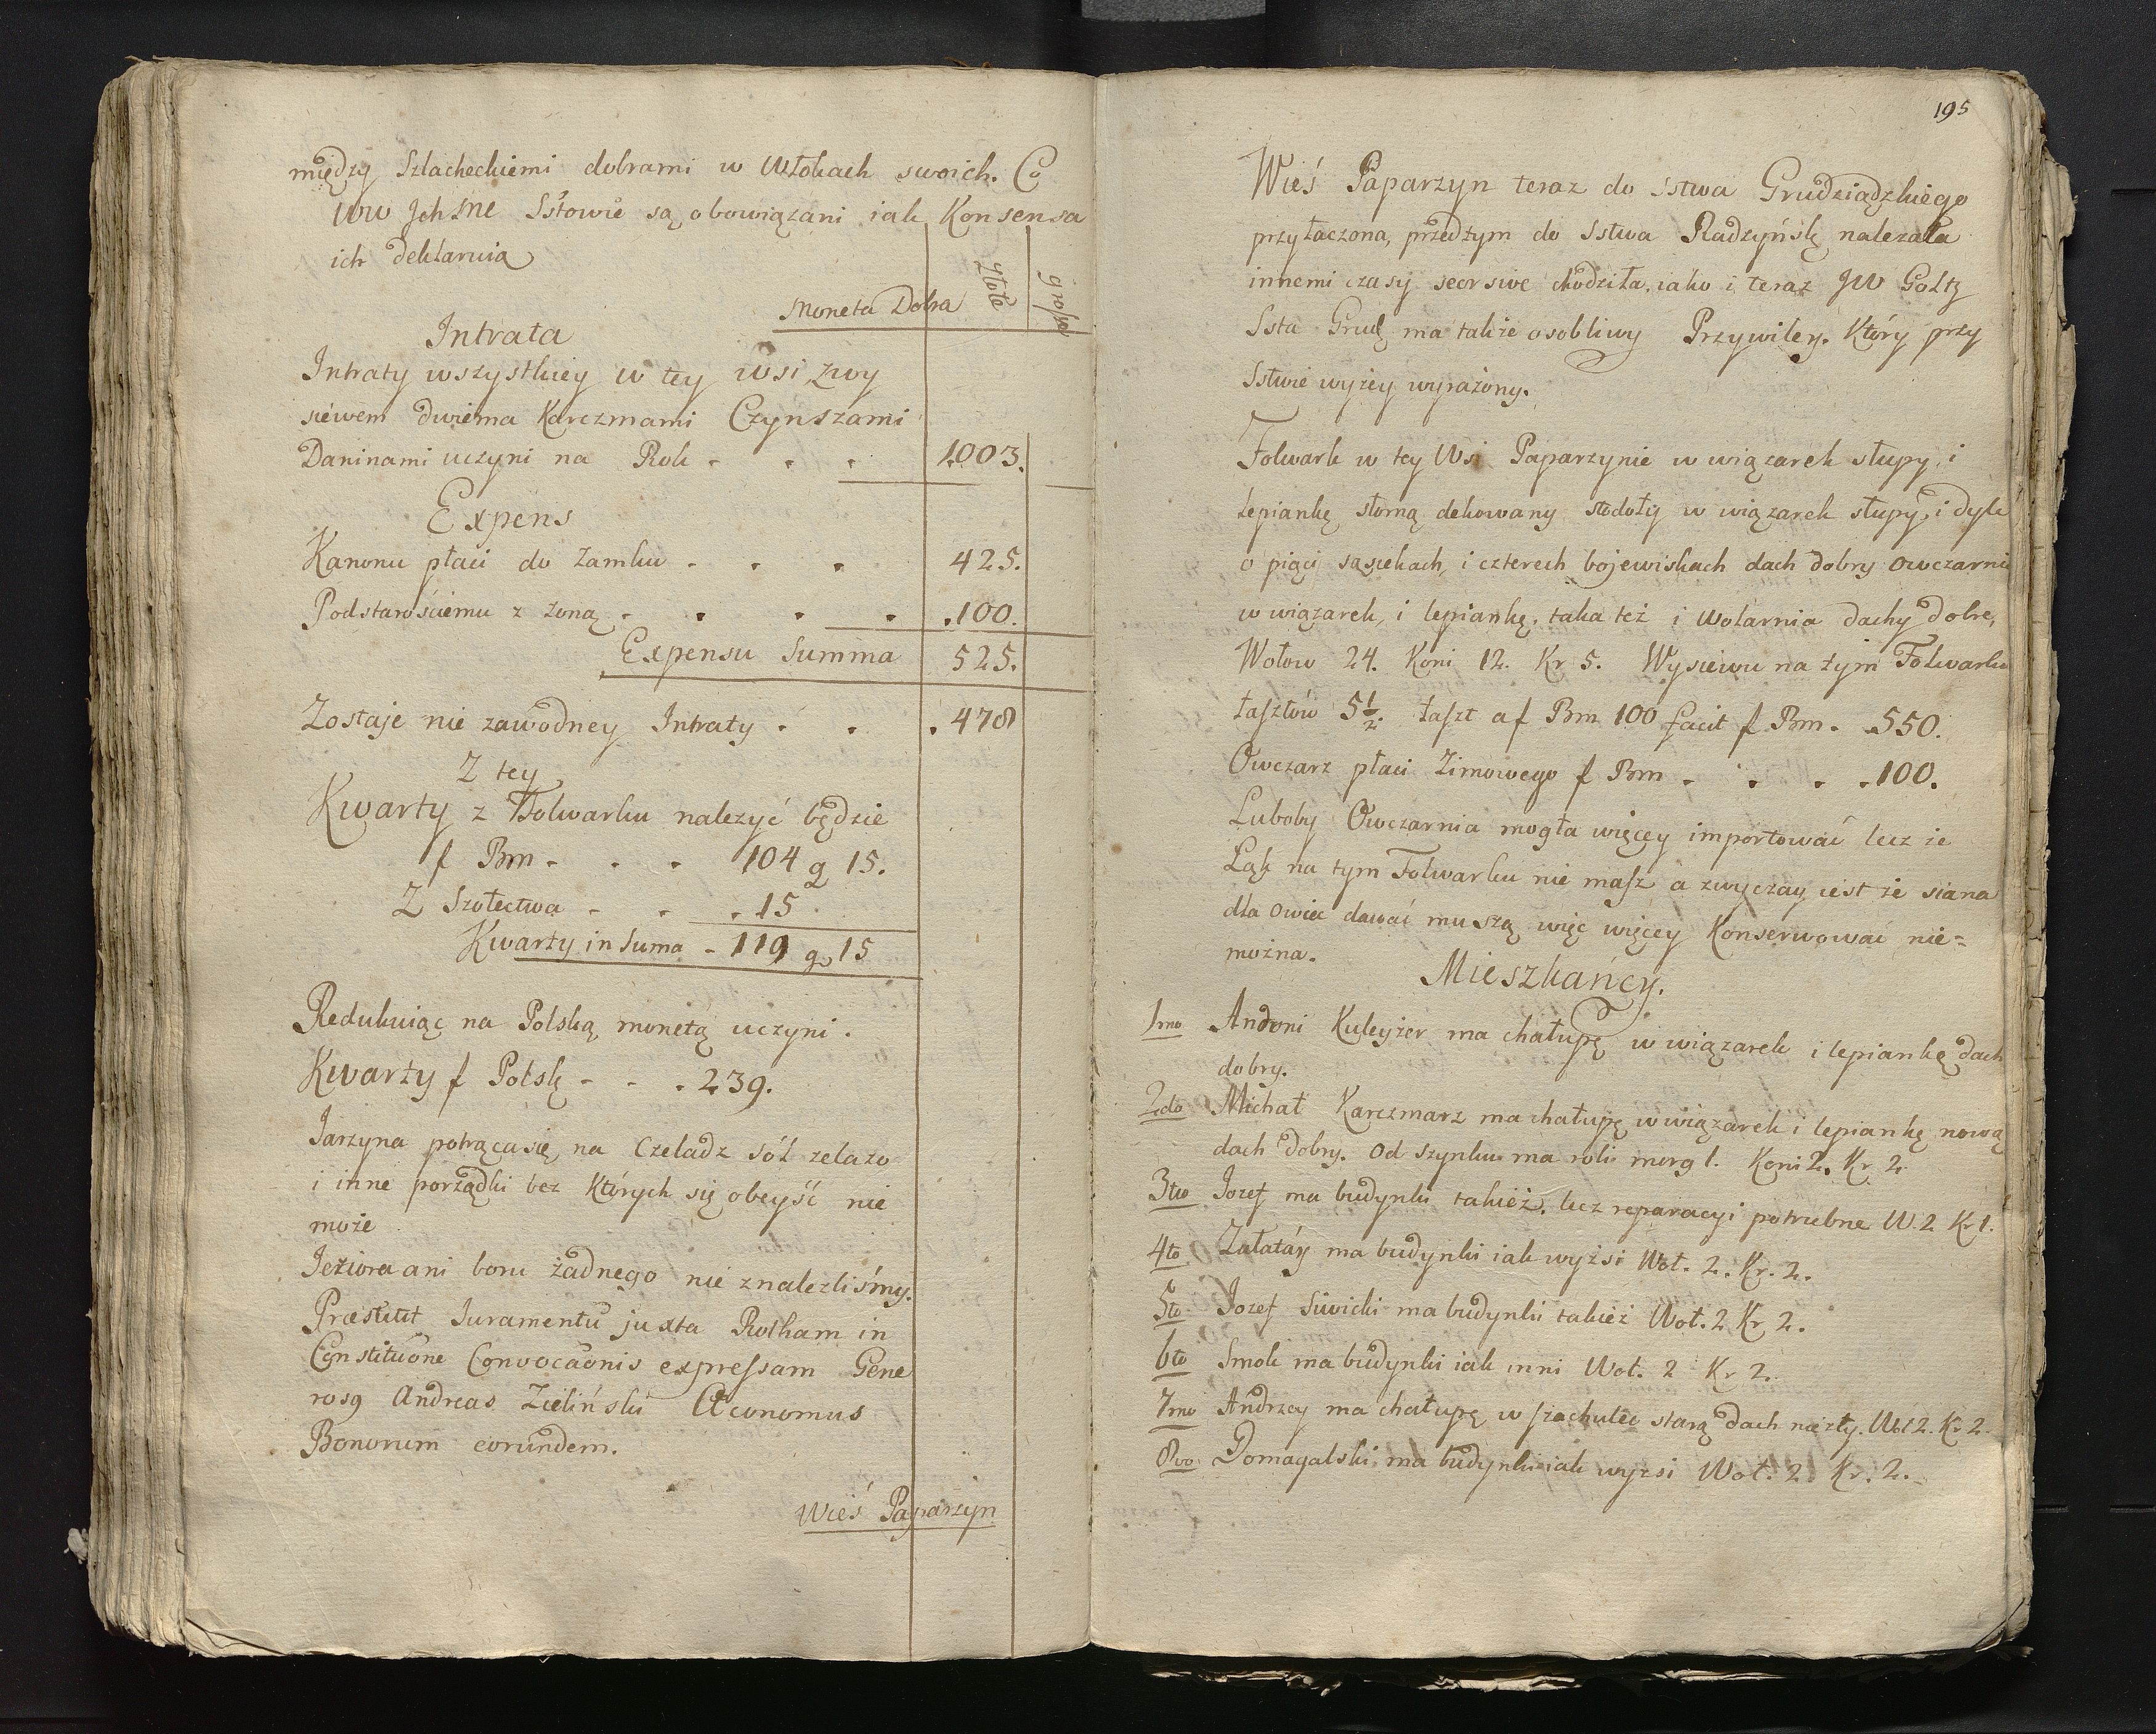 między Szlacheckiemi dobrami w Włokach swoich. Co
WW Ich Mc Sstowie są obowiązani iak Konsensa
ich deklaruią
Moneta Dobra złote grosze
Intrata
Intraty wszystkiey w tey wsi zwy
siewem dwiema Karczmami Czynszami
Daninami uczyni na Rok - - - 1003.
Expens
Kanonu płaci do Zamku - - - 425.
Podstarościemu z żoną - - - - .100.
Expensu Summa 525.
Zostaje nie zawodney Intraty - - . 478
Z tey
Kwarty z Folwarku nalezyć będzie
f Bm - - - 104 g 15.
Z Szołectwa - - - 15
Kwarty in Suma - 119 g 15
Redukuiąc na Polską monetą uczyni.
Kwarty f Polsk - - - 239.
Jarzyna potrąca się na Czeladz sól zelazo
i inne porządki bez Których się obeyść nie
może
Jeziora ani boru żadnego nie znalezliśmy.
Præstitit Juramentu juxta Rotham in
Constitucõne Convocaõnis expressam Gene
rosg Andreas Zieliński Œconomus
Bonorum eorundem.
Wieś Paparzyn
195
Wieś Paparzyn teraz do Sstwa Grudziądzkiego
przyłaczona, przedtym do Sstwa Radzyńsk nalezała
innemi czasy seorsive chodziła, iako i teraz JW Goltz
Ssta Grudz ma także osobliwy Przywiley. Który przy
Sstwie wyżey wyrażony.
Folwark w tey Wsi Paparzynie w wiązarek słupy, i
lepiankę słomą dekowany stodoły w wiązarek słupy, i dyle
o piąci sąsiekach, i czterech bojewiskach dach dobry owczarnia
w wiązarek, i lepiankę, taka też i Wołarnia dachy dobre,
Wołow 24. Koni 12. Kr 5. Wysiewu na tym Folwarku
łasztów 5½. łaszt a f Bm 100 facit f Bm. .550.
Owczarz płaci Zimowego f Bm - - - .100.
Luboby Owczarnia mogła więcey importować lecz że
Łąk na tym Folwarku nie masz a zwyczay iest że siana
dla owiec dawać muszą więc więcey Konserwować nie=
można.
Mieszkańcy.
1mo Andoni Kuleyzer ma chałupę w wiązarek i lepiankę dach
dobry.
2do Michał Karczmarz ma chałupę w wiązarek i lepiankę nową
dach dobry. Od szynku ma roli morg 1. Koni 2. Kr 2.
3tio Jozef ma budynki takież, lecz reparacyi potrzebne W. 2 Kr 1.
4to Załatáy ma budynki iak wyżsi Woł. 2. Kr. 2.
5to Jozef Siwicki ma budynki takież Woł. 2 Kr 2.
6to Smok ma budynki iak inni Woł. 2 Kr 2.
7mo Andrzey ma chałupę w szachulec starą dach niezły. Woł 2. Kr 2.
8vo Domagalski ma budynki iak wyżsi Woł. 2 Kr. 2.